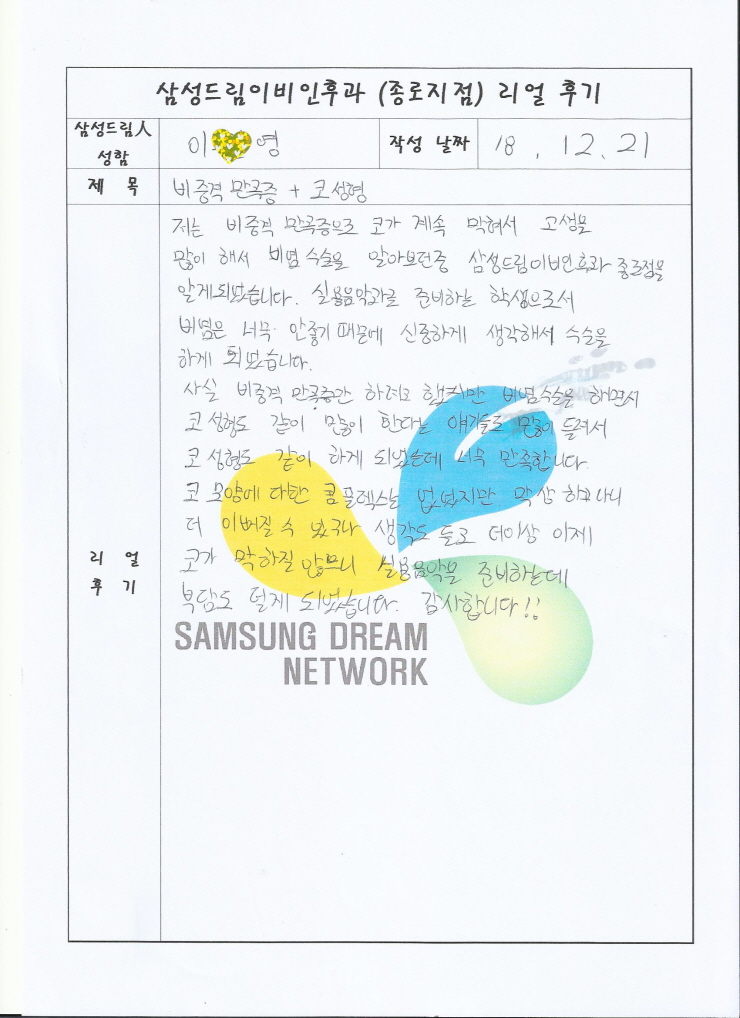 삼성드림이비인후과 (종로지점) 리얼 후기
삼성드림人 성함
이 영
작성 날짜
18. 12. 21
제 목
비중격 만곡증 + 코성형
리 얼
후 기
저는 비중격 만곡증으로 코가 계속 막혀서 고생을
많이 해서 비염 수술을 알아보던중 삼성드림이비인후과 종로점을
알게되었습니다. 실용음악과를 준비하는 학생으로서
비염은 너무 안좋기 때문에 신중하게 생각해서 수술을
하게 되었습니다.
사실 비중격 만곡증만 하려고 했지만 비염수술을 하면서
코 성형도 같이 많이 한다는 얘기들도 많이 들려서
코 성형도 같이 하게 되었는데 너무 만족합니다.
코 모양에 대한 콤플렉스는 없었지만 막상 하고나니
더 이뻐질 수 있구나 생각도 들고 더이상 이제
코가 막히질 않으니 실용음악을 준비하는데
부담도 덜게 되었습니다. 감사합니다!!
SAMSUNG DREAM
NETWORK